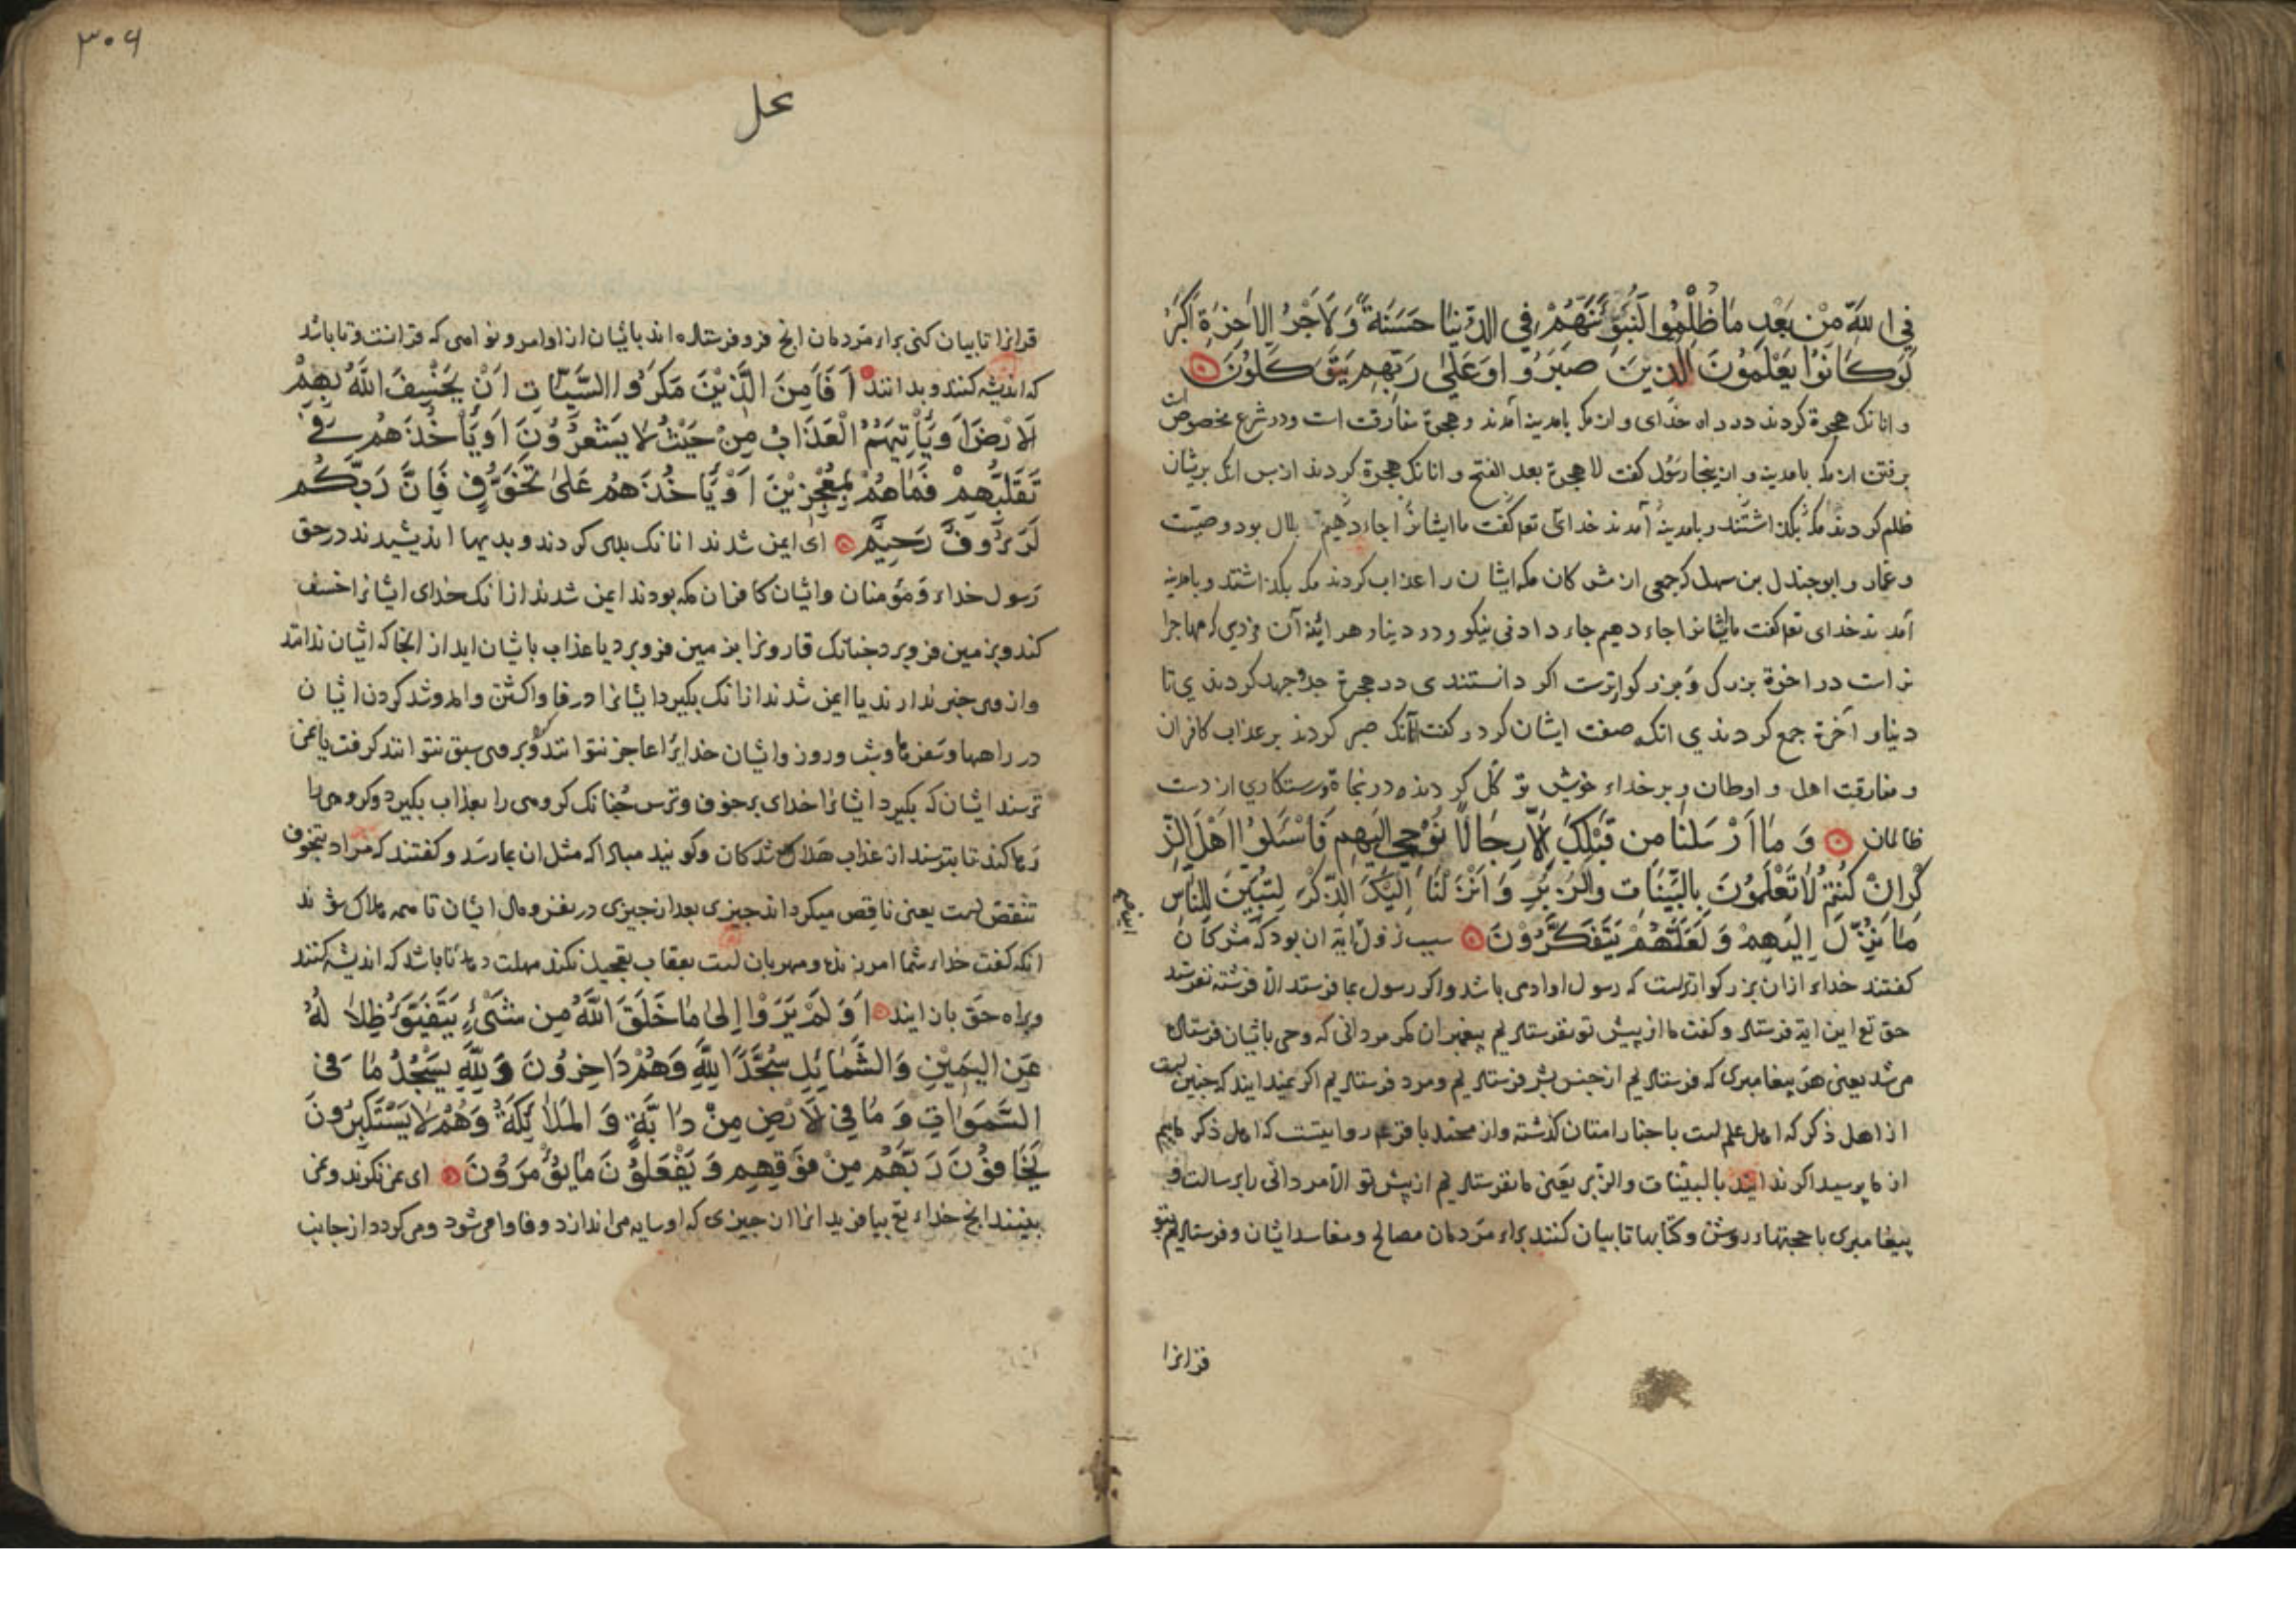 فِي اللَّهِ مِنْ بَعْدِ مَا ظُلِمُوا لَنُبَوِّئَنَّهُمْ فِي الدُّنْيَا حَسَنَةً وَلَأَجْرُ الْآخِرَةِ أَكْبَرُ
لَوْ كَانُوا يَعْلَمُونَ الَّذِينَ صَبَرُوا وَعَلَىٰ رَبِّهِمْ يَتَوَكَّلُونَ
و انانک هجرة کردند در راه خدای و از مکه بامدینه آمدند و هجرة مفارقت است و در شرع مخصوص است
برفتن از مکه بامدینه و ازینجا رسول گفت لا هجرة بعد الفتح و انانک هجرة کردند از پس انک بریشان
ظلم کردند مکه بگذاشتند و بامدینه آمدند خدای تعه گفت ما ایشانرا جاء دهیم بلال بود و صهیب
و عمار و ابوجندل بن سهل که جمعی از مشرکان مکه ایشان را عذاب کردند مکه بگذاشتند و بامدینه
آمدند خدای تعه گفت ما ایشانرا جاء دهیم جاء دادنی نیکو در دنیا و هر اینه آن مزدی که مهاجرا
نراست در اخرة بزرکل و بزرکوارترست اکر دانستندی در هجرة جد و جهد کردندی تا
دنیا و آخرة جمع کردندی انکه صفت ایشان کرد و کفت آنانک صبر کردند بر عذاب کافران
و مفارقت اهل و اوطان و بر خداء خویش توکل کردند در نجاة و رستکاری از دست
ظالمان وَمَا أَرْسَلْنَا مِن قَبْلِكَ إِلَّا رِجَالًا نُوحِي إِلَيْهِمْ فَاسْئَلُوا أَهْلَ الذِّ
كْرِ إِنْ كُنْتُمْ لَا تَعْلَمُونَ بِالْبَيِّنَاتِ وَالزُّبُرِ وَأَنْزَلْنَا إِلَيْكَ الذِّكْرَ لِتُبَيِّنَ لِلنَّاسِ
مَا نُزِّلَ إِلَيْهِمْ وَلَعَلَّهُمْ يَتَفَكَّرُونَ سبب نزول ایة ان بود که مشرکان
کفتند خداء ازان بزرکوارترست که رسول او ادمی باشد و اکر رسول بما فرستد الا فرشته نفرستد
حق تع این ایة فرستاد و کفت ما از پیش تو نفرستادیم پیغمبران مکر مردانی که وحی باشان فرستاده
می شد یعنی هر پیغامبری که فرستادیم از جنس بشر فرستادیم و مرد فرستادیم اکر نمیدانید که چنین است
از اهل ذکر که اهل علم است باخبار امتان کذشته و از محمد باقر عم روایتست که اهل ذکر ماییم
از ما پرسید اکر ندانید بالبینات والزبر یعنی ما نفرستادیم از پیش تو الا مردانی را برسالت و
پیغامبری با حجتهاء روشن و کتابها تا بیان کنند براء مردمان مصالح و مفاسد ایشان و فرستادیم بتو
قرانرا
۳۰۶
نحل
قرانرا تا بیان کنی براء مردمان انچ فرو فرستاده اند باشان از اوامر و نواهی که قرانست و تا باشد
که اندیشه کنند و بدانند أَفَأَمِنَ الَّذِينَ مَكَرُوا السَّيِّئَاتِ أَنْ يَخْسِفَ اللَّهُ بِهِمُ
الْأَرْضَ أَوْ يَأْتِيَهُمُ الْعَذَابُ مِنْ حَيْثُ لَا يَشْعُرُونَ أَوْ يَأْخُذَهُمْ فِي
تَقَلُّبِهِمْ فَمَا هُمْ بِمُعْجِزِينَ أَوْ يَأْخُذَهُمْ عَلَىٰ تَخَوُّفٍ فَإِنَّ رَبَّكُمْ
لَرَءُوفٌ رَحِيمٌ ای ایمن شدند انانک بدی کردند و بدیها اندیشیدند در حق
رسول خداء و مؤمنان و ایشان کافران مکه بودند ایمن شدند از انک خدای ایشانرا خسف
کند و بزمین فرو برد چنانک قارونرا بزمین فرو برد یا عذاب باشان اید از انجا که ایشان ندانند
و از وی خبر ندارند یا ایمن شدند از انک بگیرد ایشانرا در فا وا کشتن و امد و شد کردن ایشان
در راهها و سفرها و شب و روز و ایشان خدایرا عاجز نتوانند کرد و بر وی سبق نتوانند کرفت یا نمی
ترسند ایشان که بگیرد ایشانرا خدای بر خوف و ترس چنانک کروهی را بعذاب بگیرد و کروهی را
رها کند تا بترسند از عذاب هلاک شدکان و کویند مبادا که مثل ان بما رسد و کفتند که مراد بتخوف
تنقص است یعنی ناقص میکرداند چیزی بعد از چیزی در نفس و مال ایشان تا همه هلاک شوند
انکه کفت خداء شما امرزنده و مهربان است بعقاب تعجیل نکند مهلت دهد تا باشد که اندیشه کنند
و براه حق باز ایند أَوَلَمْ يَرَوْا إِلَىٰ مَا خَلَقَ اللَّهُ مِن شَيْءٍ يَتَفَيَّؤُ ظِلَالُهُ
عَنِ الْيَمِينِ وَالشَّمَائِلِ سُجَّدًا لِلَّهِ وَهُمْ دَاخِرُونَ وَلِلَّهِ يَسْجُدُ مَا فِي
السَّمَوَاتِ وَمَا فِي الْأَرْضِ مِنْ دَابَّةٍ وَالْمَلَائِكَةُ وَهُمْ لَا يَسْتَكْبِرُونَ
يَخَافُونَ رَبَّهُمْ مِنْ فَوْقِهِمْ وَيَفْعَلُونَ مَا يُؤْمَرُونَ ای نمی نکرند و نمی
بینند انچ خداء تع بیافرید از ان چیزی که او سایه می اندازد و فاوا می شود و می کردد از جانب